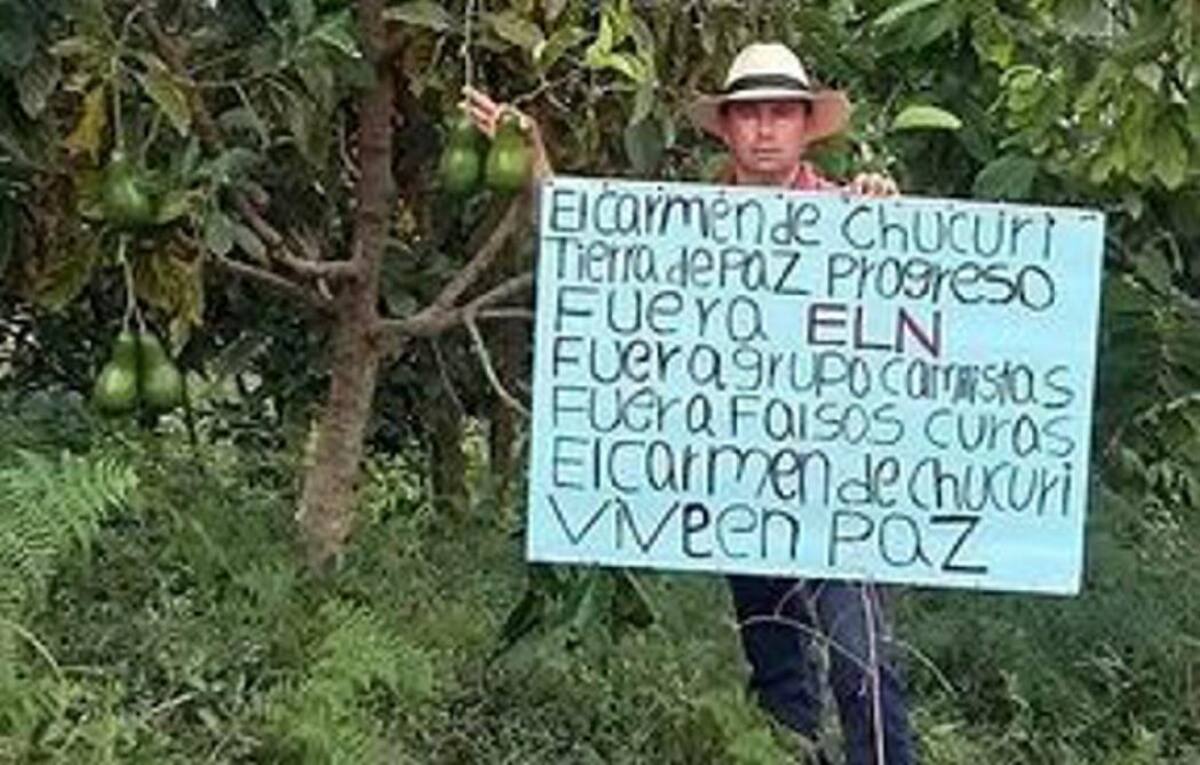 El carmen de Chucuri
Tierra de Paz Progreso
Fuera ELN
Fuera grupo carmistas
Fuera Falsos curas
El carmen de chucuri
Vive en Paz